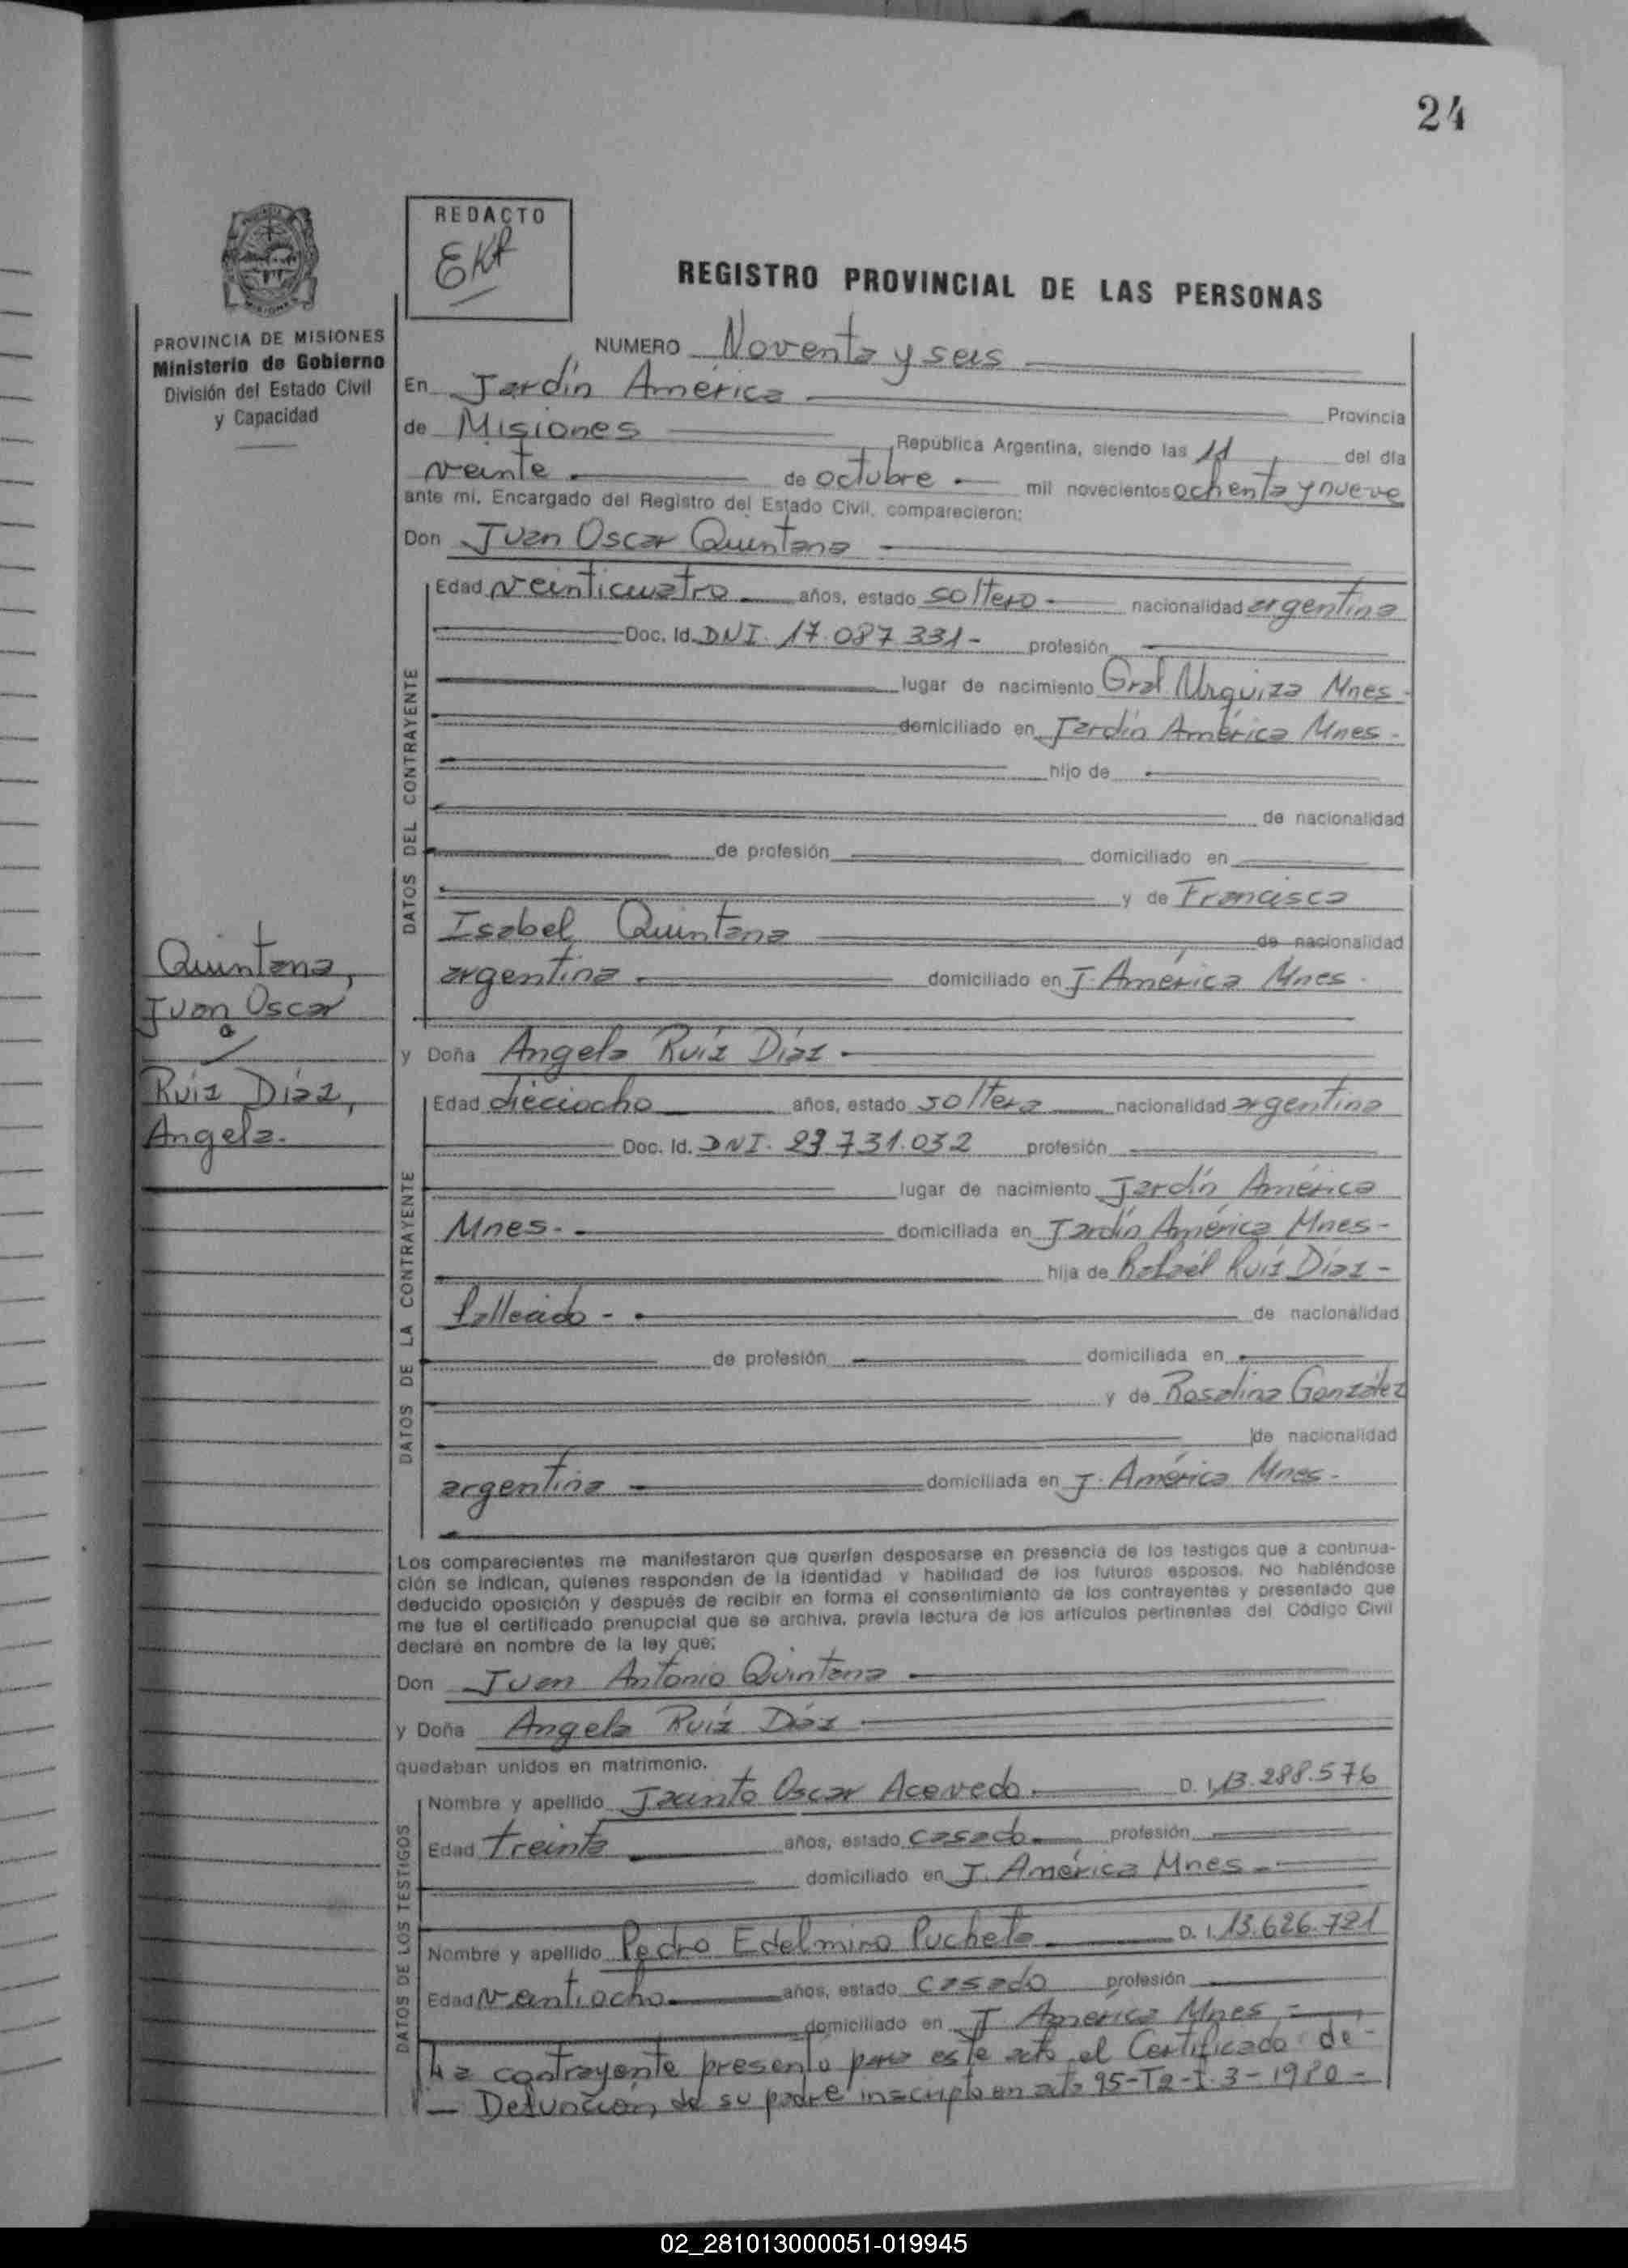 24
REDACTO
REGISTRO PROVINCIAL DE LAS PERSONAS
PROVINCIA DE MISIONES
Ministerio de Gobierno
División del Estado Civil
y Capacidad
NUMERO Noventa y seis
En Jardín América Provincia
de Misiones República Argentina, siendo las 11 del día
veinte de octubre mil novecientos ochenta y nueve
ante mí, Encargado del Registro del Estado Civil, comparecieron:
Don Juan Oscar Quintana
DATOS DEL CONTRAYENTE
Edad veinticuatro años, estado soltero nacionalidad argentina
Doc. Id. DNI. 17.087 331- profesión
lugar de nacimiento Gral Urquiza Mnes-
domiciliado en Jardín América Mnes-
hijo de
de nacionalidad
de profesión domiciliado en
y de Francisca
Isabel Quintana de nacionalidad
argentina domiciliado en J. América Mnes.
Quintana,
Juan Oscar
a
Ruiz Díaz,
Angela.
y Doña Angela Ruíz Díaz
DATOS DE LA CONTRAYENTE
Edad dieciocho años, estado soltera nacionalidad argentina
Doc. Id. DNI. 731.032 profesión
lugar de nacimiento Jardín América
Mnes- domiciliada en Jardín América Mnes-
hija de Rafaél Ruíz Díaz-
fallecido- de nacionalidad
de profesión domiciliada en
y de Rosalina González
de nacionalidad
argentina domiciliada en J. América Mnes-
Los comparecientes me manifestaron que querían desposarse en presencia de los testigos que a continua-
ción se indican, quienes responden de la identidad y habilidad de los futuros esposos. No habiéndose
deducido oposición y después de recibir en forma el consentimiento de los contrayentes y presentado que
me fue el certificado prenupcial que se archiva, previa lectura de los artículos pertinentes del Código Civil
declaré en nombre de la ley que:
Don Juan Antonio Quintana
y Doña Angela Ruíz Díaz
quedaban unidos en matrimonio.
DATOS DE LOS TESTIGOS
Nombre y apellido Jacinto Oscar Acevedo D. I. 13.288.576
Edad treinta años, estado casado profesión
domiciliado en J. América Mnes-
Nombre y apellido Pedro Edelmiro Pucheta D. I. 13.626.721
Edad ventiocho años, estado casado profesión
domiciliado en J. América Mnes-
La contrayente presento para este acto el Certificado de-
- Defunción de su padre inscripto en acta 95-T2-I.3-1980-
02_281013000051-019945